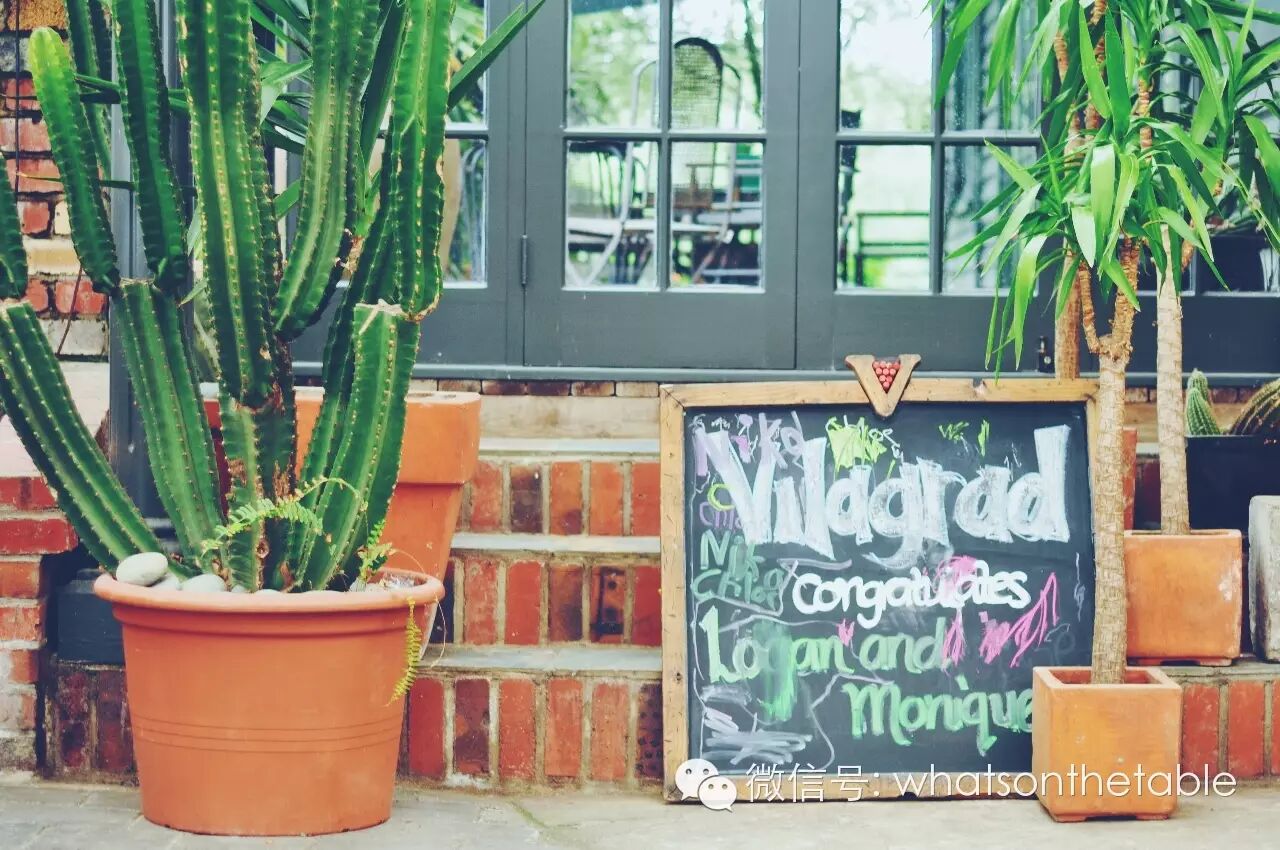 Vilagrad
congratulates
Logan and
Monique
Nik
Chloe
微信号: whatsonthetable